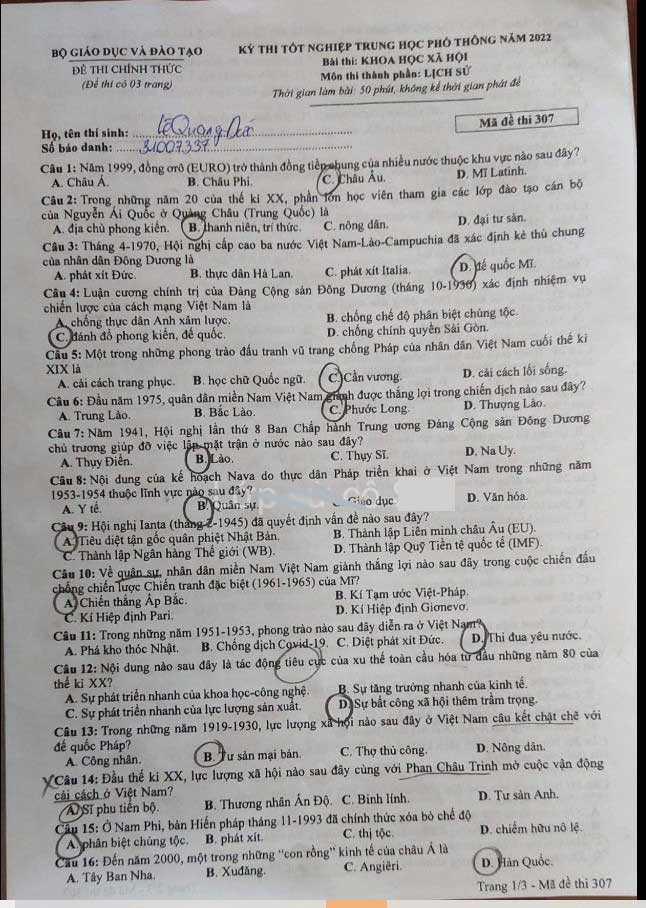 BỘ GIÁO DỤC VÀ ĐÀO TẠO
ĐỀ THI CHÍNH THỨC
(Đề thi có 03 trang)
KỲ THI TỐT NGHIỆP TRUNG HỌC PHỔ THÔNG NĂM 2022
Bài thi: KHOA HỌC XÃ HỘI
Môn thi thành phần: LỊCH SỬ
Thời gian làm bài: 50 phút, không kể thời gian phát đề
Họ, tên thí sinh: Lê Quang Đức
Số báo danh: 31007337
Mã đề thi 307
Câu 1: Năm 1999, đồng ơrô (EURO) trở thành đồng tiền chung của nhiều nước thuộc khu vực nào sau đây?
A. Châu Á. B. Châu Phi. C. Châu Âu. D. Mĩ Latinh.
Câu 2: Trong những năm 20 của thế kỉ XX, phần lớn học viên tham gia các lớp đào tạo cán bộ
của Nguyễn Ái Quốc ở Quảng Châu (Trung Quốc) là
A. địa chủ phong kiến. B. thanh niên, trí thức. C. nông dân. D. đại tư sản.
Câu 3: Tháng 4-1970, Hội nghị cấp cao ba nước Việt Nam-Lào-Campuchia đã xác định kẻ thù chung
của nhân dân Đông Dương là
A. phát xít Đức. B. thực dân Hà Lan. C. phát xít Italia. D. đế quốc Mĩ.
Câu 4: Luận cương chính trị của Đảng Cộng sản Đông Dương (tháng 10-1930) xác định nhiệm vụ
chiến lược của cách mạng Việt Nam là
A. chống thực dân Anh xâm lược. B. chống chế độ phân biệt chủng tộc.
C. đánh đổ phong kiến, đế quốc. D. chống chính quyền Sài Gòn.
Câu 5: Một trong những phong trào đấu tranh vũ trang chống Pháp của nhân dân Việt Nam cuối thế kỉ
XIX là
A. cải cách trang phục. B. học chữ Quốc ngữ. C. Cần vương. D. cải cách lối sống.
Câu 6: Đầu năm 1975, quân dân miền Nam Việt Nam giành được thắng lợi trong chiến dịch nào sau đây?
A. Trung Lào. B. Bắc Lào. C. Phước Long. D. Thượng Lào.
Câu 7: Năm 1941, Hội nghị lần thứ 8 Ban Chấp hành Trung ương Đảng Cộng sản Đông Dương
chủ trương giúp đỡ việc lập mặt trận ở nước nào sau đây?
A. Thụy Điển. B. Lào. C. Thụy Sĩ. D. Na Uy.
Câu 8: Nội dung của kế hoạch Nava do thực dân Pháp triển khai ở Việt Nam trong những năm
1953-1954 thuộc lĩnh vực nào sau đây?
A. Y tế. B. Quân sự. Giáo dục. D. Văn hóa.
Câu 9: Hội nghị Ianta (tháng 2-1945) đã quyết định vấn đề nào sau đây?
A. Tiêu diệt tận gốc quân phiệt Nhật Bản. B. Thành lập Liên minh châu Âu (EU).
C. Thành lập Ngân hàng Thế giới (WB). D. Thành lập Quỹ Tiền tệ quốc tế (IMF).
Câu 10: Về quân sự, nhân dân miền Nam Việt Nam giành thắng lợi nào sau đây trong cuộc chiến đấu
chống chiến lược Chiến tranh đặc biệt (1961-1965) của Mĩ?
A. Chiến thắng Ấp Bắc. B. Kí Tạm ước Việt-Pháp.
C. Kí Hiệp định Pari. D. Kí Hiệp định Giơnevơ.
Câu 11: Trong những năm 1951-1953, phong trào nào sau đây diễn ra ở Việt Nam?
A. Phá kho thóc Nhật. B. Chống dịch Covid-19. C. Diệt phát xít Đức. D. Thi đua yêu nước.
Câu 12: Nội dung nào sau đây là tác động tiêu cực của xu thế toàn cầu hóa từ đầu những năm 80 của
thế kỉ XX?
A. Sự phát triển nhanh của khoa học-công nghệ. B. Sự tăng trưởng nhanh của kinh tế.
C. Sự phát triển nhanh của lực lượng sản xuất. D. Sự bất công xã hội thêm trầm trọng.
Câu 13: Trong những năm 1919-1930, lực lượng xã hội nào sau đây ở Việt Nam câu kết chặt chẽ với
đế quốc Pháp?
A. Công nhân. B. Tư sản mại bản. C. Thợ thủ công. D. Nông dân.
Câu 14: Đầu thế kỉ XX, lực lượng xã hội nào sau đây cùng với Phan Châu Trinh mở cuộc vận động
cải cách ở Việt Nam?
A. Sĩ phu tiến bộ. B. Thương nhân Ấn Độ. C. Binh lính. D. Tư sản Anh.
Câu 15: Ở Nam Phi, bản Hiến pháp tháng 11-1993 đã chính thức xóa bỏ chế độ
A. phân biệt chủng tộc. B. phát xít. C. thị tộc. D. chiếm hữu nô lệ.
Câu 16: Đến năm 2000, một trong những “con rồng” kinh tế của châu Á là
A. Tây Ban Nha. B. Xuđăng. C. Angiêri. D. Hàn Quốc.
Trang 1/3 - Mã đề thi 307